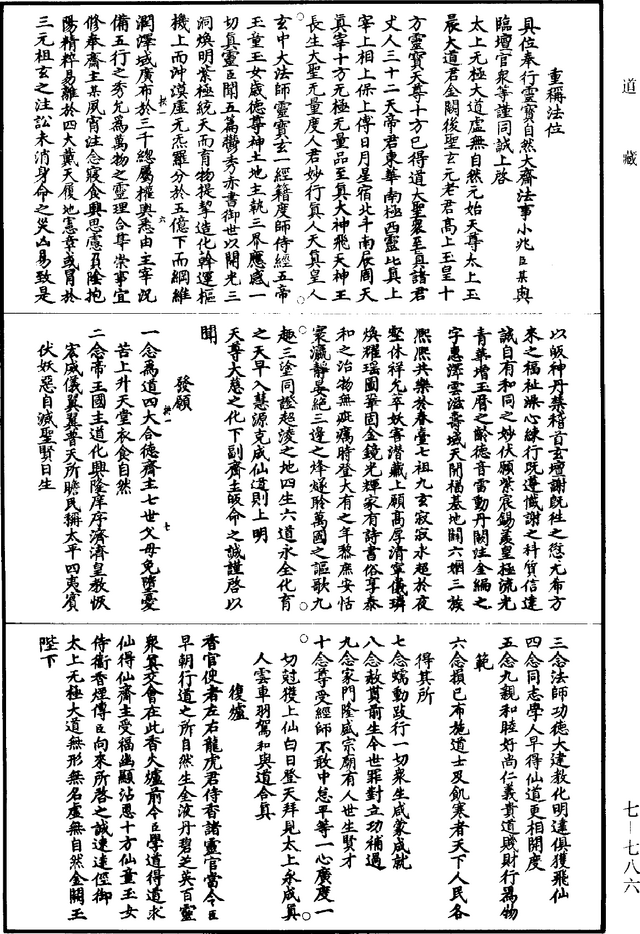 道藏
重稱法位
具位奉行靈寶自然大齋法事小兆臣某與
臨壇官衆等謹同誠上啓
太上無極大道虛無自然元始天尊太上玉
晨大道君金闕後聖玄元老君高上玉皇十
方靈寶天尊十方已得道大聖衆至真諸君
丈人三十二天帝君東華南極西靈北真上
宰上相上保上傅日月星宿北斗南辰周天
真宰十方無極無量品至真大神飛天神王
長生大聖無量度人君妙行真人天真皇人
玄中大法師靈寶玄一經籍度師侍經五帝
玉童玉女威德尊神土地主執三界應感一
切真靈臣聞五篇鬱秀赤書御世以開光三
洞煥明紫極統天而育物提挈造化幹運樞
機上而沖漠虛無炁羅分於五億下而綱維
潤澤域廣布於三千總屬權輿悉由主宰況
備五行之秀允爲萬物之靈理合尊崇事宜
修奉齋主某夙宵注念寢食興思慮負陰抱
陽精粹易離於四大戴天履地憲章或冒於
三元祖玄之注訟未消身命之災凶易致是
以皈神丹禁稽首玄壇謝旣徃之愆尤希方
來之福祉澡心練行旣遵懺謝之科質信達
誠自有和同之妙伏願紫宸錫羨皇極流光
青華增玉曆之齡德音雷動丹闕注金編之
字惠澤雲滋壽域天開福基地闢六姻三族
熙熙共樂於春臺七祖九玄寂寂永超於夜
壑休祥允卒妖沴潜藏上願高厚清寧儀璘
煥耀瑶圖鞏固金鏡光輝家有詩書俗享泰
和之治物無疵癘時登大有之年黎庶安恬
寰瀛靜晏絕三邊之烽燧聆萬國之謳歌九
趣三塗同證超淩之地四生六道永全化育
之天早入慧源克成仙道則上明
天尊大慈之化下副齋主皈命之誠謹啓以
聞
發願
一念爲道四大合德齋主七世父母免墮憂
苦上升天堂衣食自然
二念帝王國主道化興隆庠序濟濟皇教恢
宏威儀翼翼普天所瞻民稱太平四夷賓
伏妖惡自滅聖賢日生
三念法師功德大建教化明達俱獲飛仙
四念同志學人早得仙道更相開度
五念九親和睦好尚仁義貴道賤財行爲物
範
六念損已布施道士及飢寒者天下人民各
得其所
七念蠕動跂行一切衆生咸蒙成就
八念赦貰前生今世罪對立功補過
九念家門隆盛宗廟有人世生賢才
十念尊受經師不敢中怠平等一心廣度一
切冠獲上仙白日登天拜見太上永成真
人雲車羽駕和與道合真
復爐
香官使者左右龍虎君侍香諸靈官當令臣
早朝行道之所自然生金液丹碧芝英百靈
衆真交會在此香火爐前令臣學道得道求
仙得仙齋主受福幽顯沾恩十方仙童玉女
侍衛香煙傳臣向來所啓之誠速達徑御
太上無極大道無形無名虛無自然金闕玉
陛下
七—七八六